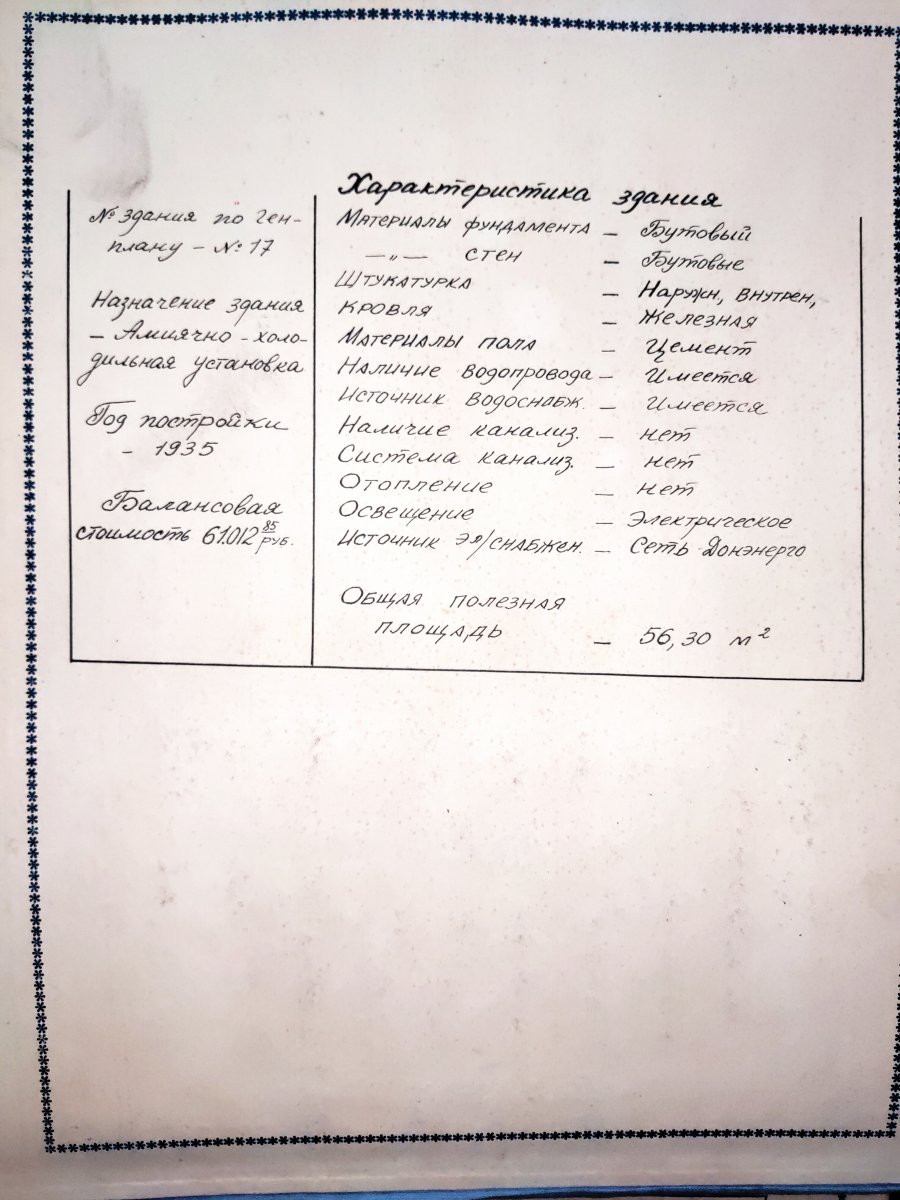 № здания по ген-
плану – № 17
Назначение здания
– Амиячно-холо-
дильная установка
Год постройки
– 1935
Балансовая
стоимость 61.012 85 руб.
Характеристика здания
Материалы фундамента – Бутовый
—„— стен – Бутовые
Штукатурка – Наружн, внутрен,
Кровля – Железная
Материалы пола – Цемент
Наличие водопровода – Имеется
Источник водоснабж. – Имеется
Наличие канализ. – нет
Система канализ. – нет
Отопление – нет
Освещение – Электрическое
Источник эл/снабжен. – Сеть Донэнерго
Общая полезная
площадь – 56,30 м²